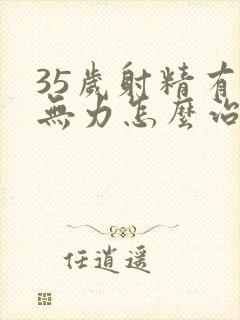 35歲射精有
無力怎麼治
任逍遥